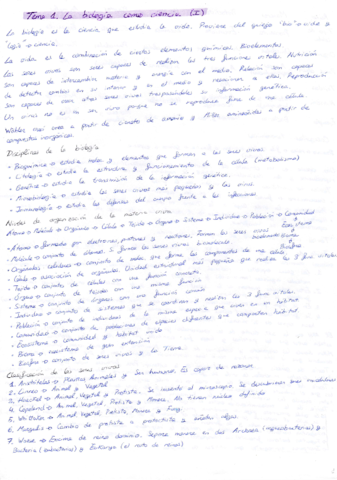 Tema 1. La biología como ciencia (I)
La biología es la ciencia que estudia la vida. Proviene del griego "bio" = vida y
logía = ciencia.
La vida es la combinación de ciertos elementos químicos. Bioelementos
Los seres vivos son seres capaces de realizar las tres funciones vitales. Nutrición
son capaces de intercambiar materia y energía con el medio, Relación son capaces
de detectar cambios en su interior y en el medio y reaccionar a ellos, Reproducción
son capaces de crear otros seres vivos traspasándoles su información genética.
Un virus no es un ser vivo porque no se reproduce fuera de una célula.
compuestos inorgánicos.
Disciplinas de la biología
• Bioquímica → estudia moléculas y elementos que forman a los seres vivos
• Citología → estudia la estructura y funcionamiento de la célula (metabolismo)
• Genética → estudia la transmisión de la información genética.
• Microbiología → estudia los seres vivos más pequeños y los virus
• Inmunología → estudia las defensas del cuerpo frente a las infecciones
Niveles de organización de la materia viva
Átomo → Molécula → Orgánulo → Célula → Tejido → Órgano → Sistema → Individuo → Población → Comunidad
Ecosistema
Bioma
Biosfera
• Átomo → formado por electrones, protones y neutrones. Forman los seres vivos
• Molécula → conjunto de átomos. Si forman los seres vivos
• Orgánulos celulares → conjunto de moléculas que forma los componentes de una célula
• Célula → asociación de orgánulos. Unidad estructural más pequeña que realiza las 3 func. vitales
• Tejido → conjunto de células con una función concreta.
• Órgano → conjunto de tejidos con una misma función
• Sistema → conjunto de órganos con una función común
• Individuo → conjunto de sistemas que se coordinan y realizan las 3 func. vitales
• Población → conjunto de individuos de la misma especie que viven en un hábitat
• Comunidad → conjunto de poblaciones de especies diferentes que comparten hábitat
• Ecosistema → comunidad y hábitat
• Bioma → ecosistema de gran extensión
• Biosfera → conjunto de seres vivos y la Tierra
Clasificación de los seres vivos
1. Aristóteles → Plantas, Animales y Ser humano.
2. Linneo → Animal y Vegetal
3. Haeckel → Animal, Vegetal y Protista. Se inventa el microscopio
4. Copeland → Animal, Vegetal, Protista y Monera.
5. Whittaker → Animal, Vegetal, Protista, Monera y Fungi
6. Margulis → Cambia de protista a protoctista y añade algas
7. Woese → Encima de reino dominio. Separa monera en dos Archaea (arqueobacterias) y
Bacteria (eubacterias) y Eukarya (el resto de reinos)